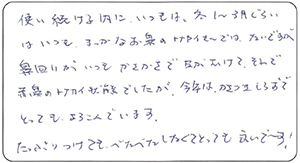 使い続ける内に、いつもは、冬1～3月ぐらい
はいつも、まっかなお鼻のトナカイさ～では、ないですが、
鼻回りが いつも かさかさで 皮がむけて、それで
赤鼻のトナカイ状態でしたが、今年は、かさつきしらずで
とっても よろこんでいます。
たっぷりつけても、べたべたしなくてとっても良いで～す!